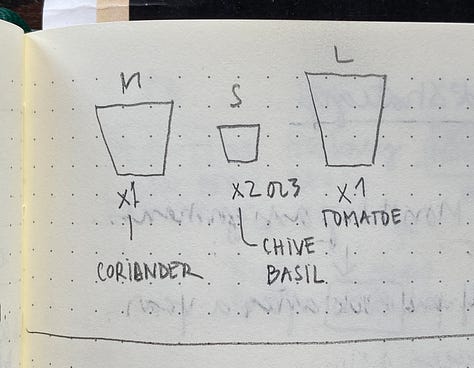 M S L
x1 x2 or 3 x1
TOMATOE
CORIANDER
CHIVE
BASIL